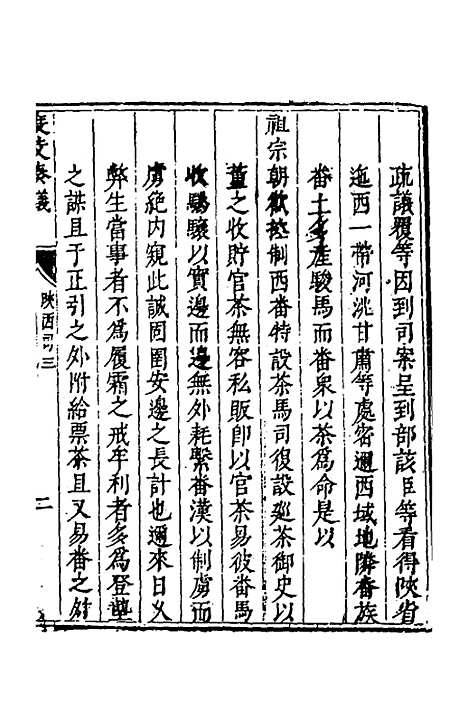 疏議覆等因到司案呈到部該臣等看得陝省
迤西一帶河洮甘肅等處密邇西域地隣畨族
畨土多産駿馬而畨衆以茶爲命是以
祖宗朝歡控制西畨特設茶馬司復設廵茶御史以
董之收貯官茶無客私販卽以官茶易彼畨馬
收驕驤以實邊而邊無外耗繫畨漢以制虜而
虜絶内窺此誠固圉安邊之長計也邇來日乆
弊生當事者不爲履霜之戒牟利者多爲登壟
之謀且于正引之外附給票茶且又易畨之
度支奏議
陝西司三
二